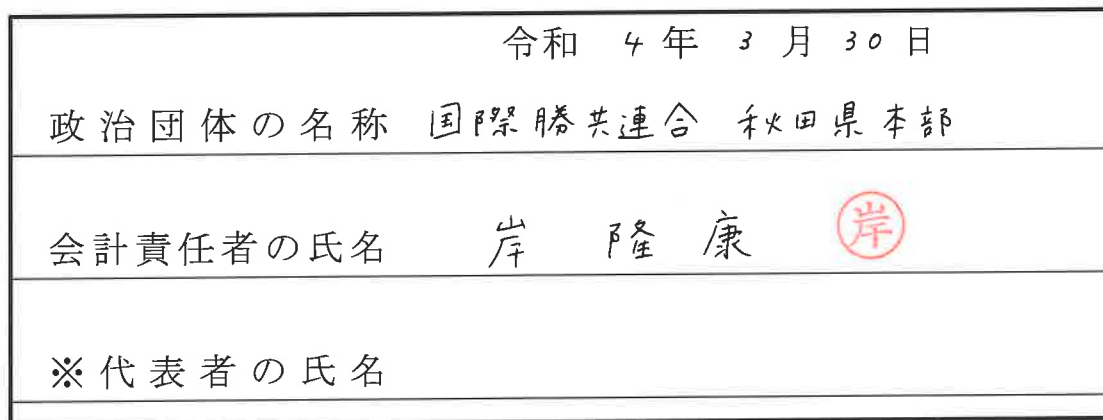 令和 4 年 3 月 30 日
政治団体の名称 国際勝共連合 秋田県本部
会計責任者の氏名 岸 隆康 岸
※代表者の氏名